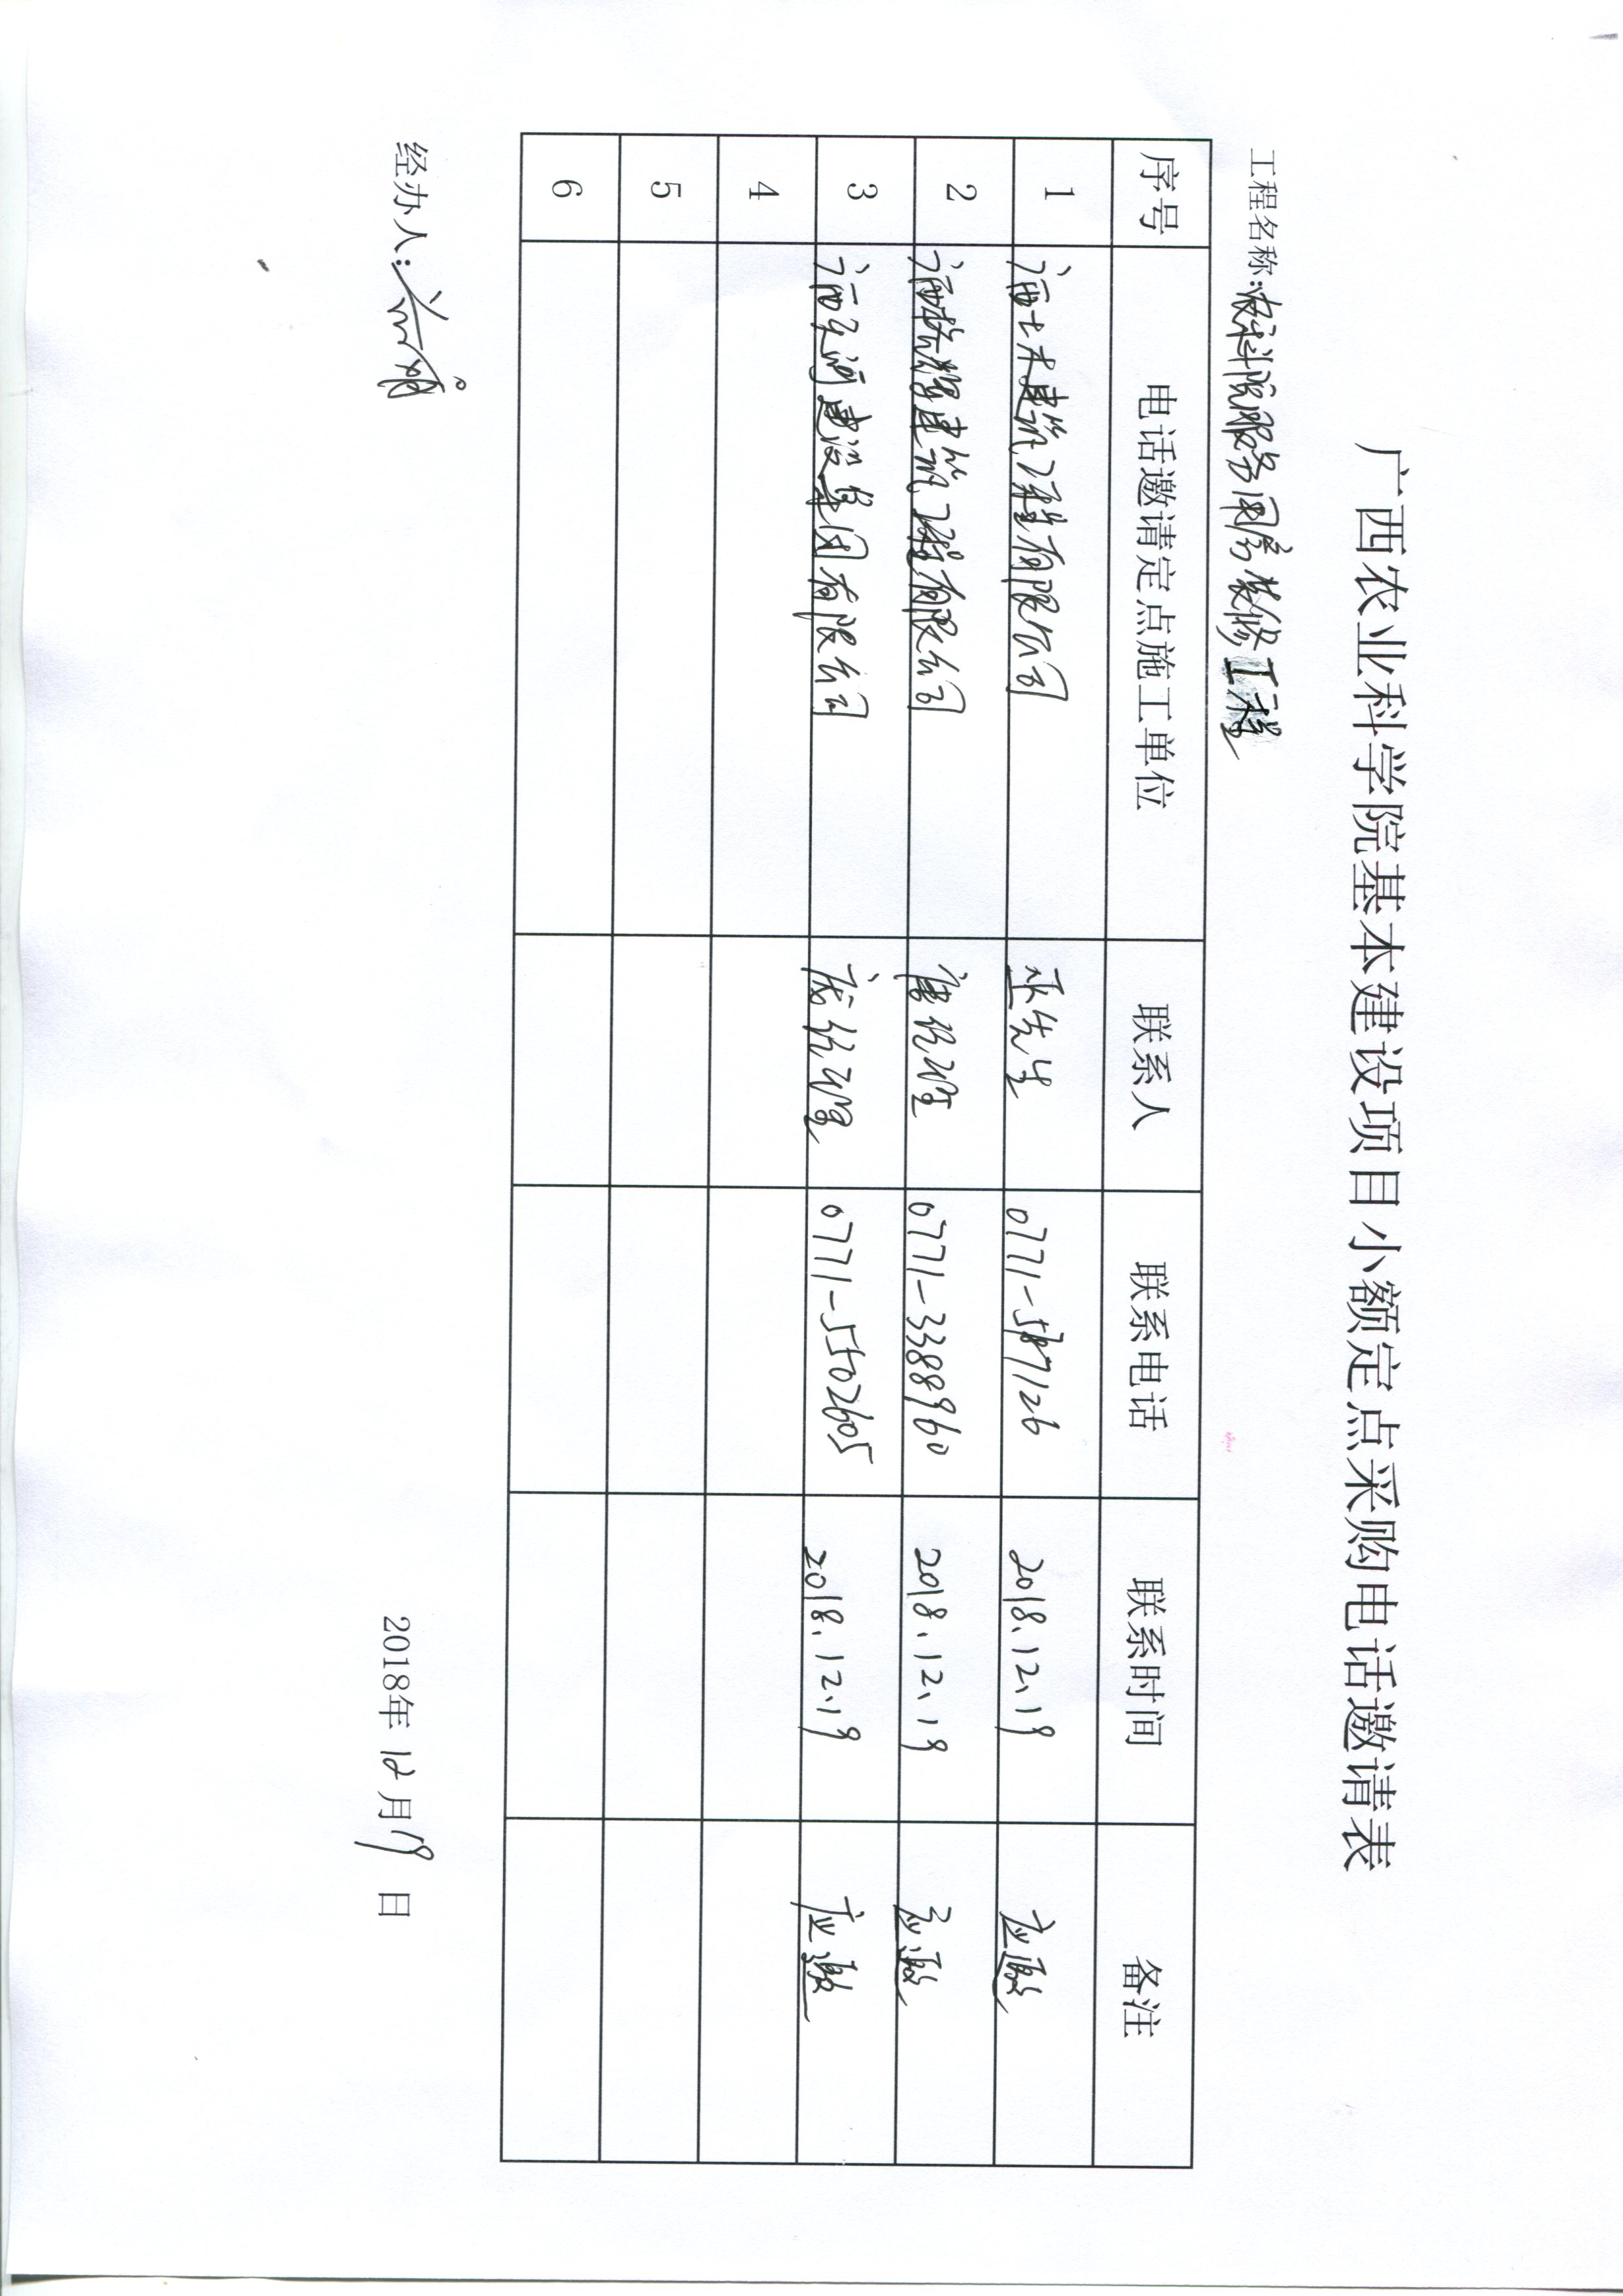 广西农业科学院基本建设项目小额定点采购电话邀请表
工程名称:农科院服务用房装修工程
序号 电话邀请定点施工单位 联系人 联系电话 联系时间 备注
1 广西土木建筑工程有限公司 巫先生 0771-5787126 2018.12.19 应邀
2 建筑工程有限公司 经理 0771-3388960 2018.12.19 应邀
3 建设集团有限公司 经理 0771-5502605 2018.12.19 应邀
4
5
6
经办人:
2018年12月19日